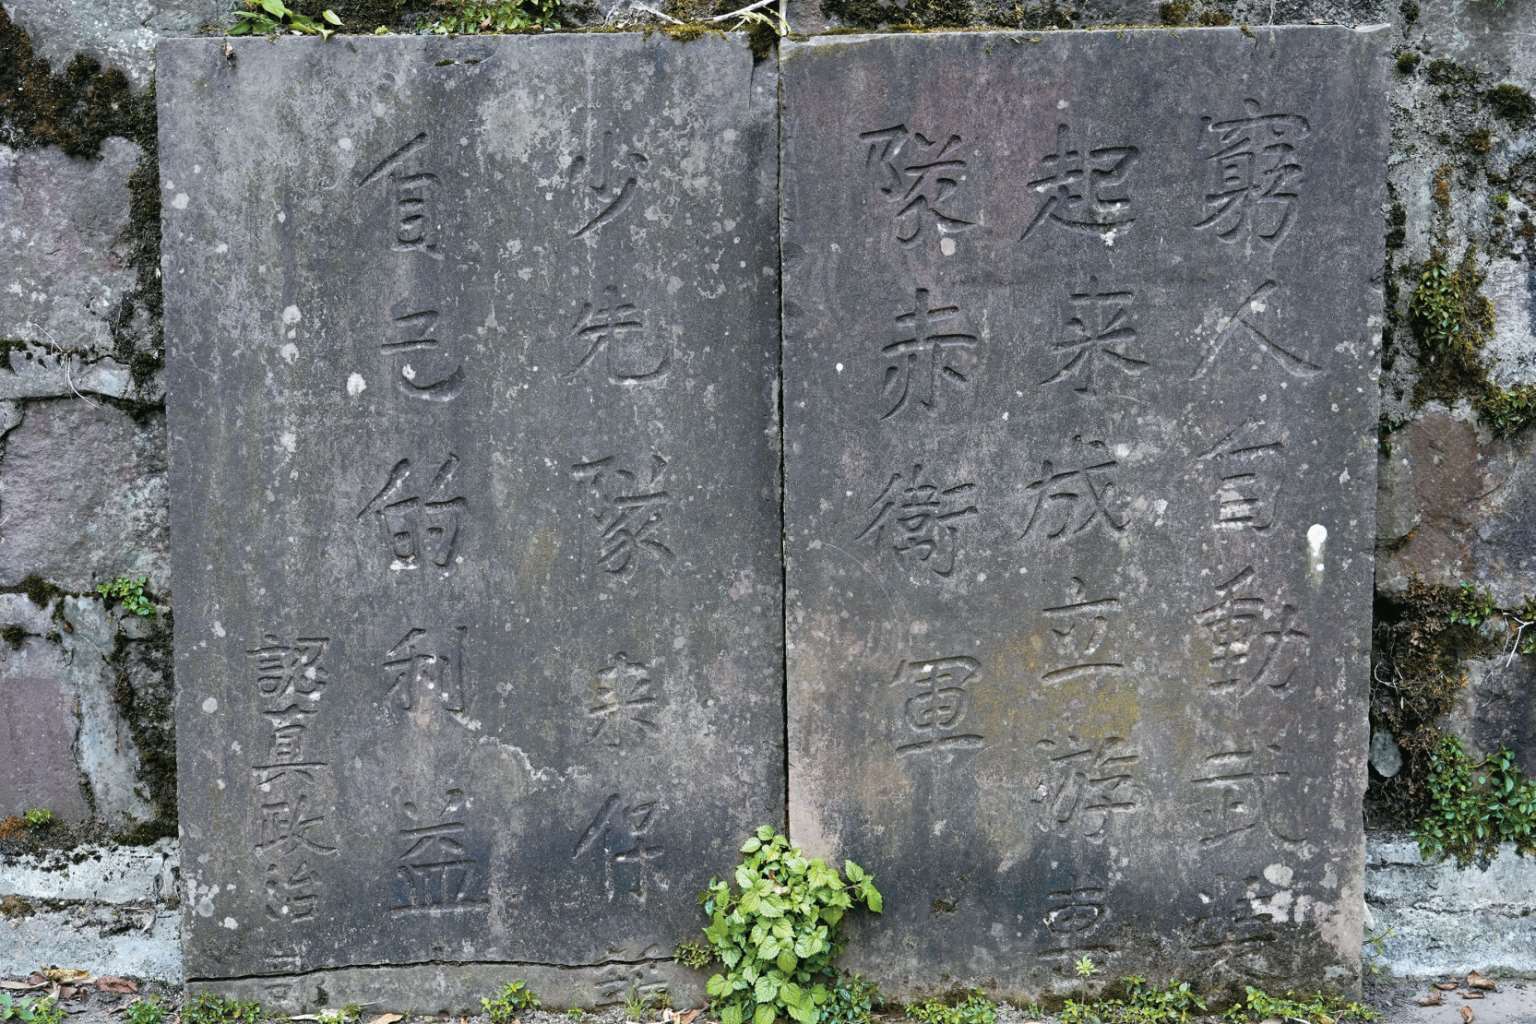 窮人自動武裝
起来成立游擊
隊赤衛軍
少先隊来保
自己的利益
認真政治